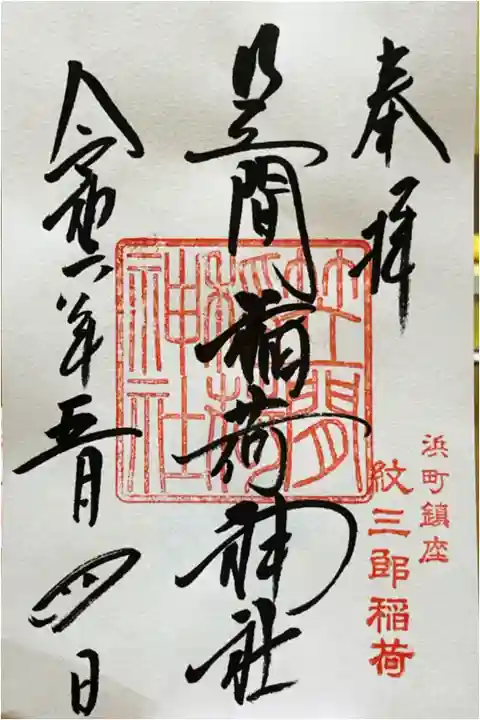 奉拝
浜町鎮座
紋三郎稲荷
笠間稲荷神社
笠間
稲荷
神社
令和六年五月四日